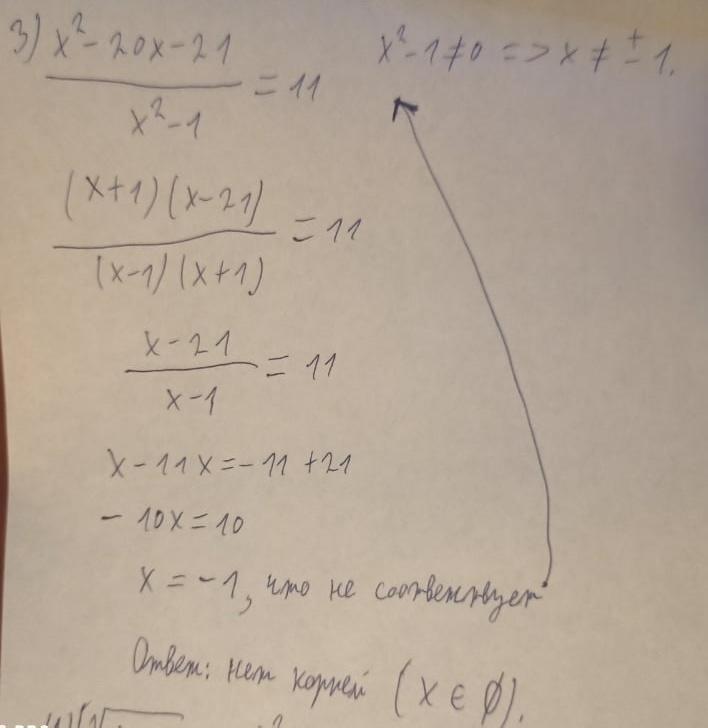 3) x²-20x-21 / x²-1 = 11 x²-1≠0 => x≠±1.
(x+1)(x-21) / (x-1)(x+1) = 11
x-21 / x-1 = 11
x-11x=-11+21
-10x=10
x=-1, что не соответствует
Ответ: нет корней (x∈∅).